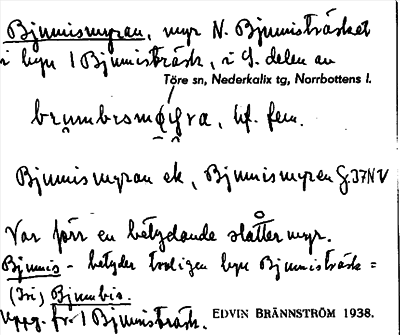 Bjumismyran, myr N. Bjumisträsket
i byn 1 Bjumisträsk, i S. delen av
Töre sn, Nederkalix tg, Norrbottens l.
bf. fem.
Bjumismyran ek, Bjumismyren G.37NV
Var förr en betydande slåttermyr.
Bjumis - betyder troligen byn Bjumisträsk =
(Tri) Bjumbis.
Uppg. fr. 1 Bjumisträsk. EDVIN BRÄNNSTRÖM 1938.